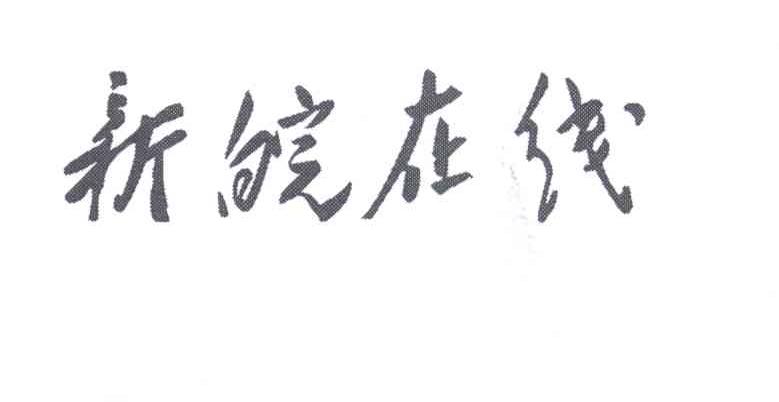 新皖在线